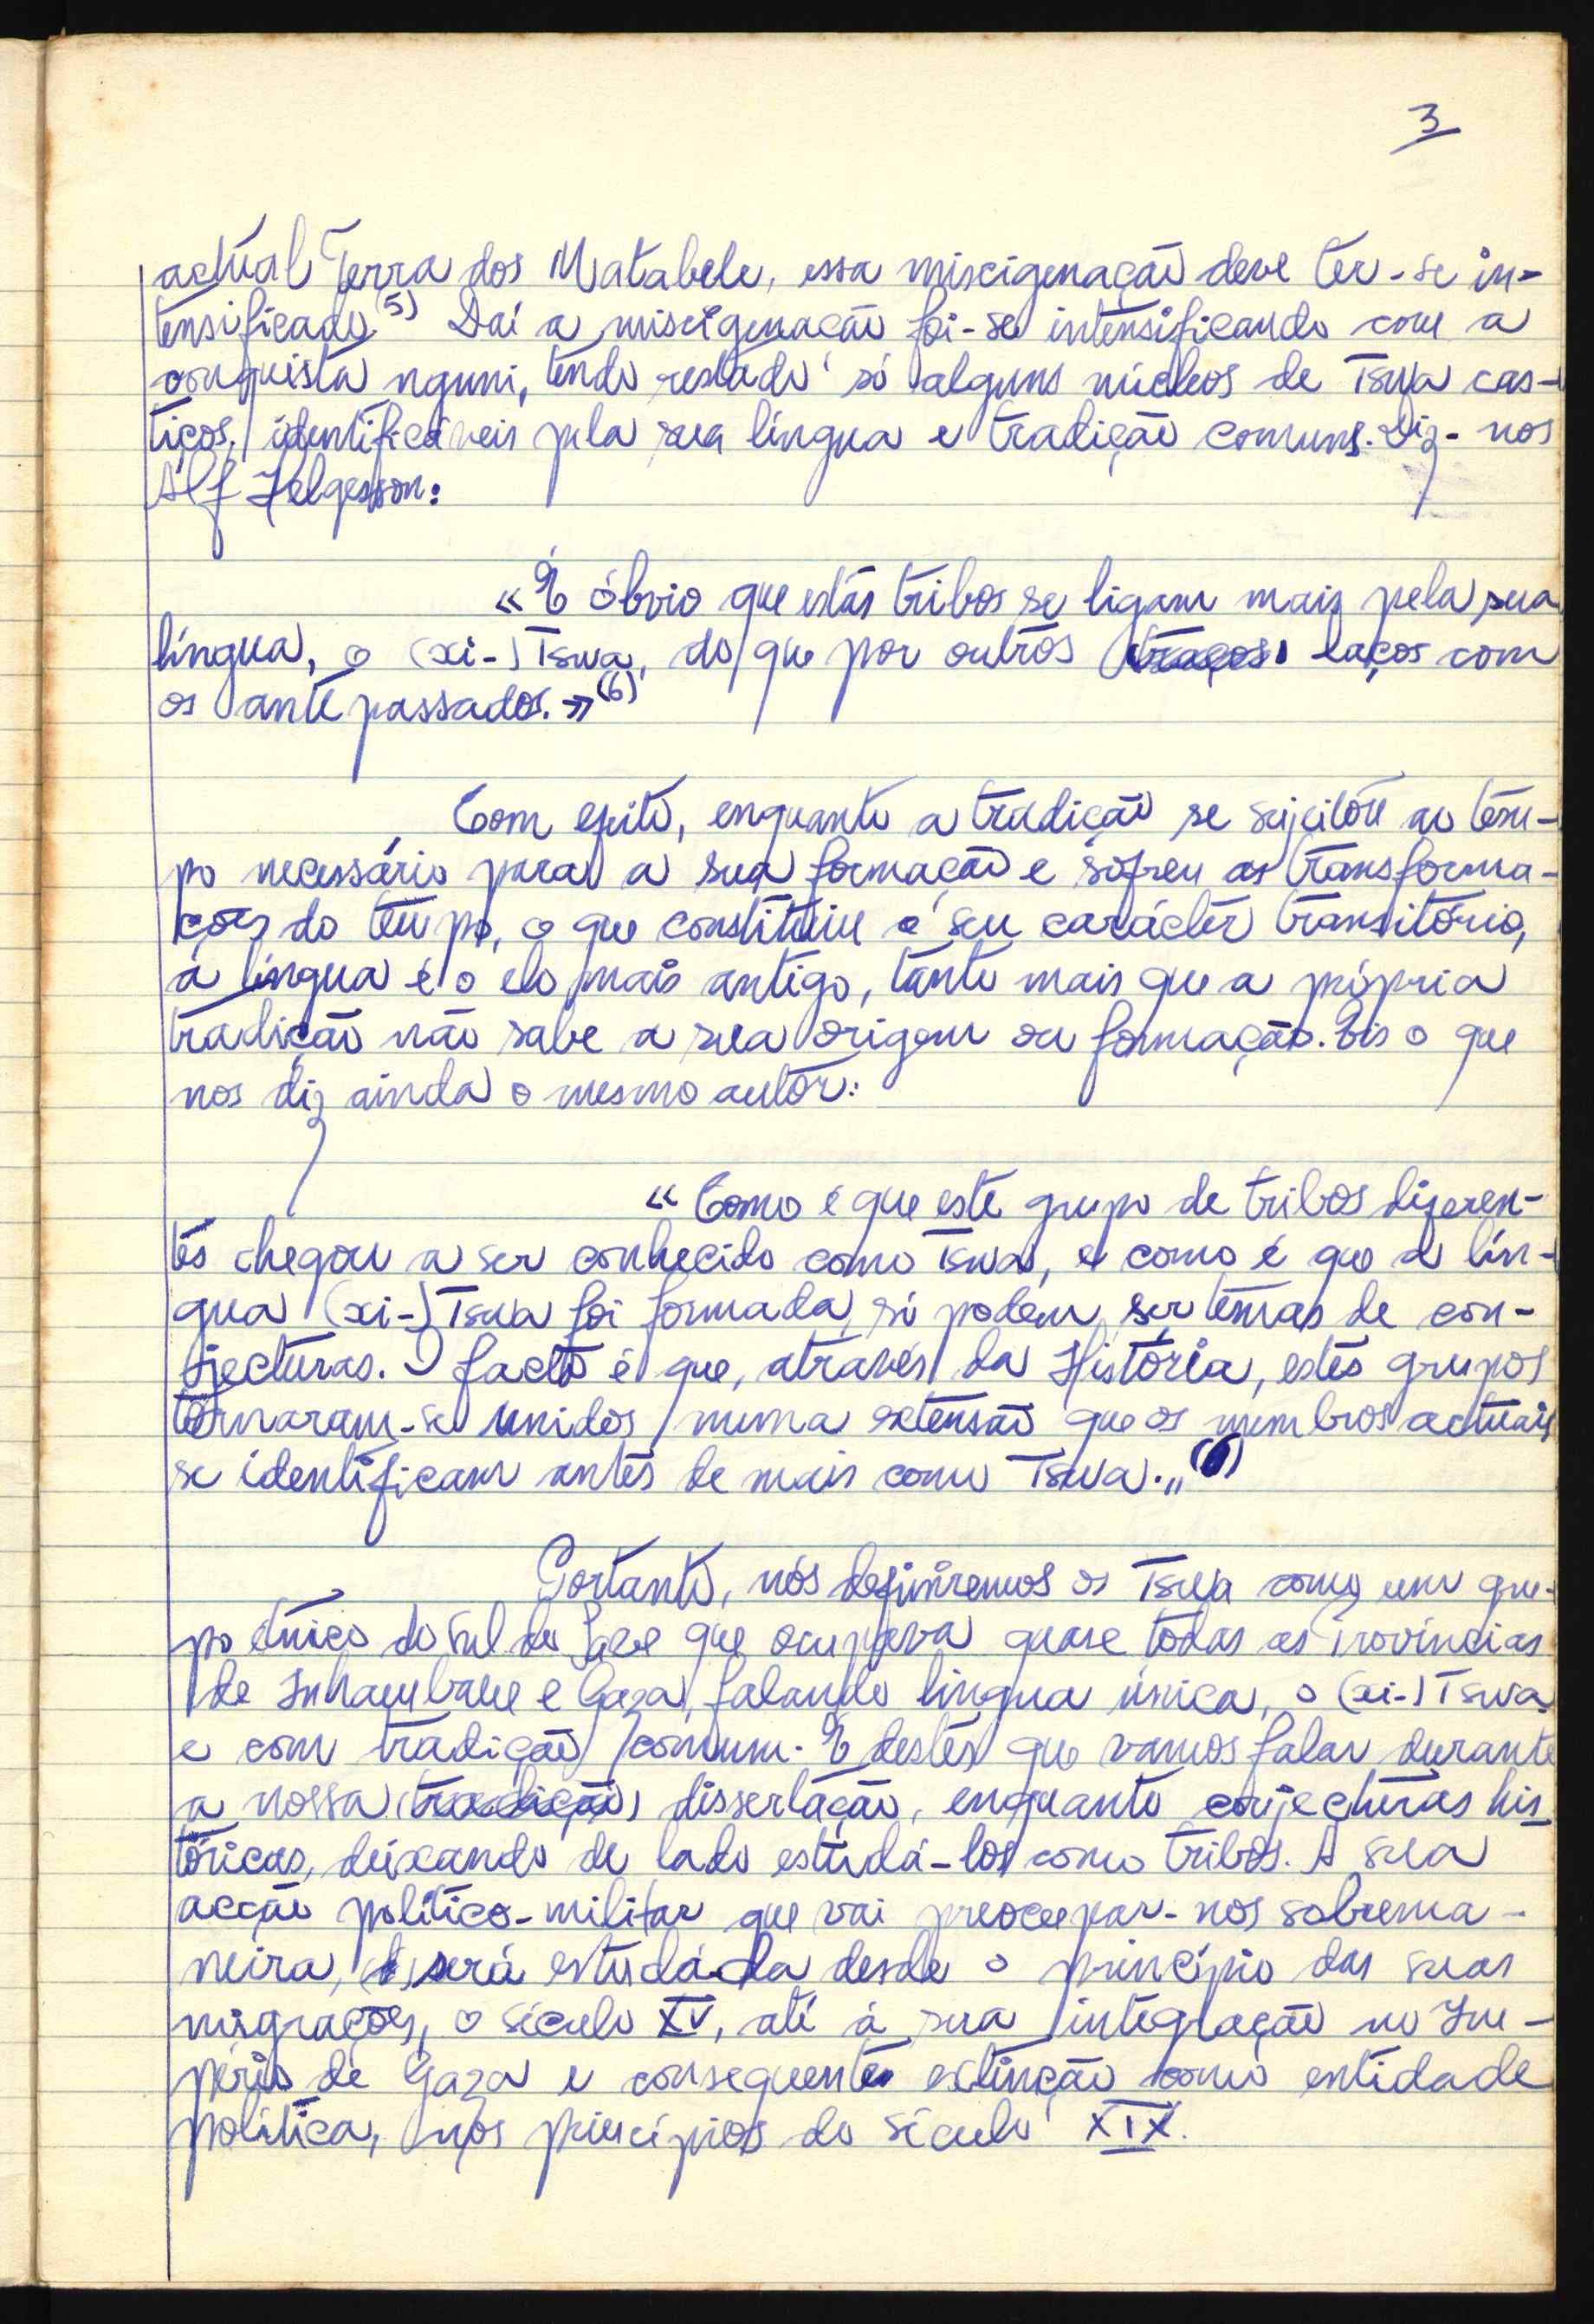 3
actual Terra dos Matabele, essa miscigenação deve ter-se in-
tensificado.5) Daí a miscigenação foi-se intensificando com a
conquista nguni, tendo restado só alguns núcleos de Tswa cas-
tiços, identificáveis pela sua língua e tradição comuns. Diz-nos
Alf Helgesson:
«É óbvio que estas tribos se ligam mais pela sua
língua, o (xi-)Tswa, do que por outros (traços) laços com
os antepassados.»(6)
Com efeito, enquanto a tradição se sujeitou ao tem-
po necessário para a sua formação e sofreu as transforma-
ções do tempo, o que constitui o seu carácter transitório,
a língua é o elo mais antigo, tanto mais que a própria
tradição não sabe a sua origem ou formação. Eis o que
nos diz ainda o mesmo autor:
«Como é que este grupo de tribos diferen-
tes chegou a ser conhecido como Tswa, e como é que a lín-
gua (xi-)Tswa foi formada, só podem ser temas de con-
jecturas. O facto é que, através da História, estes grupos
tornaram-se unidos numa extensão que os membros actuais
se identificam antes de mais como Tswa.„
Portanto, nós definiremos os Tswa como um gru-
po étnico do Sul do Save que ocupava quase todas as Províncias
de Inhambane e Gaza, falando língua única, o (xi-)Tswa,
e com tradição comum. É destes que vamos falar durante
a nossa (tradição) dissertação, enquanto conjecturas his
tóricas, deixando de lado estudá-los como tribos. A sua
acção político-militar que vai preocupar-nos sobrema-
neira, será estudada desde o princípio das suas
migrações, o século XV, até à sua integração no Im-
pério de Gaza e consequente extinção como entidade
política, nos princípios do século XIX.